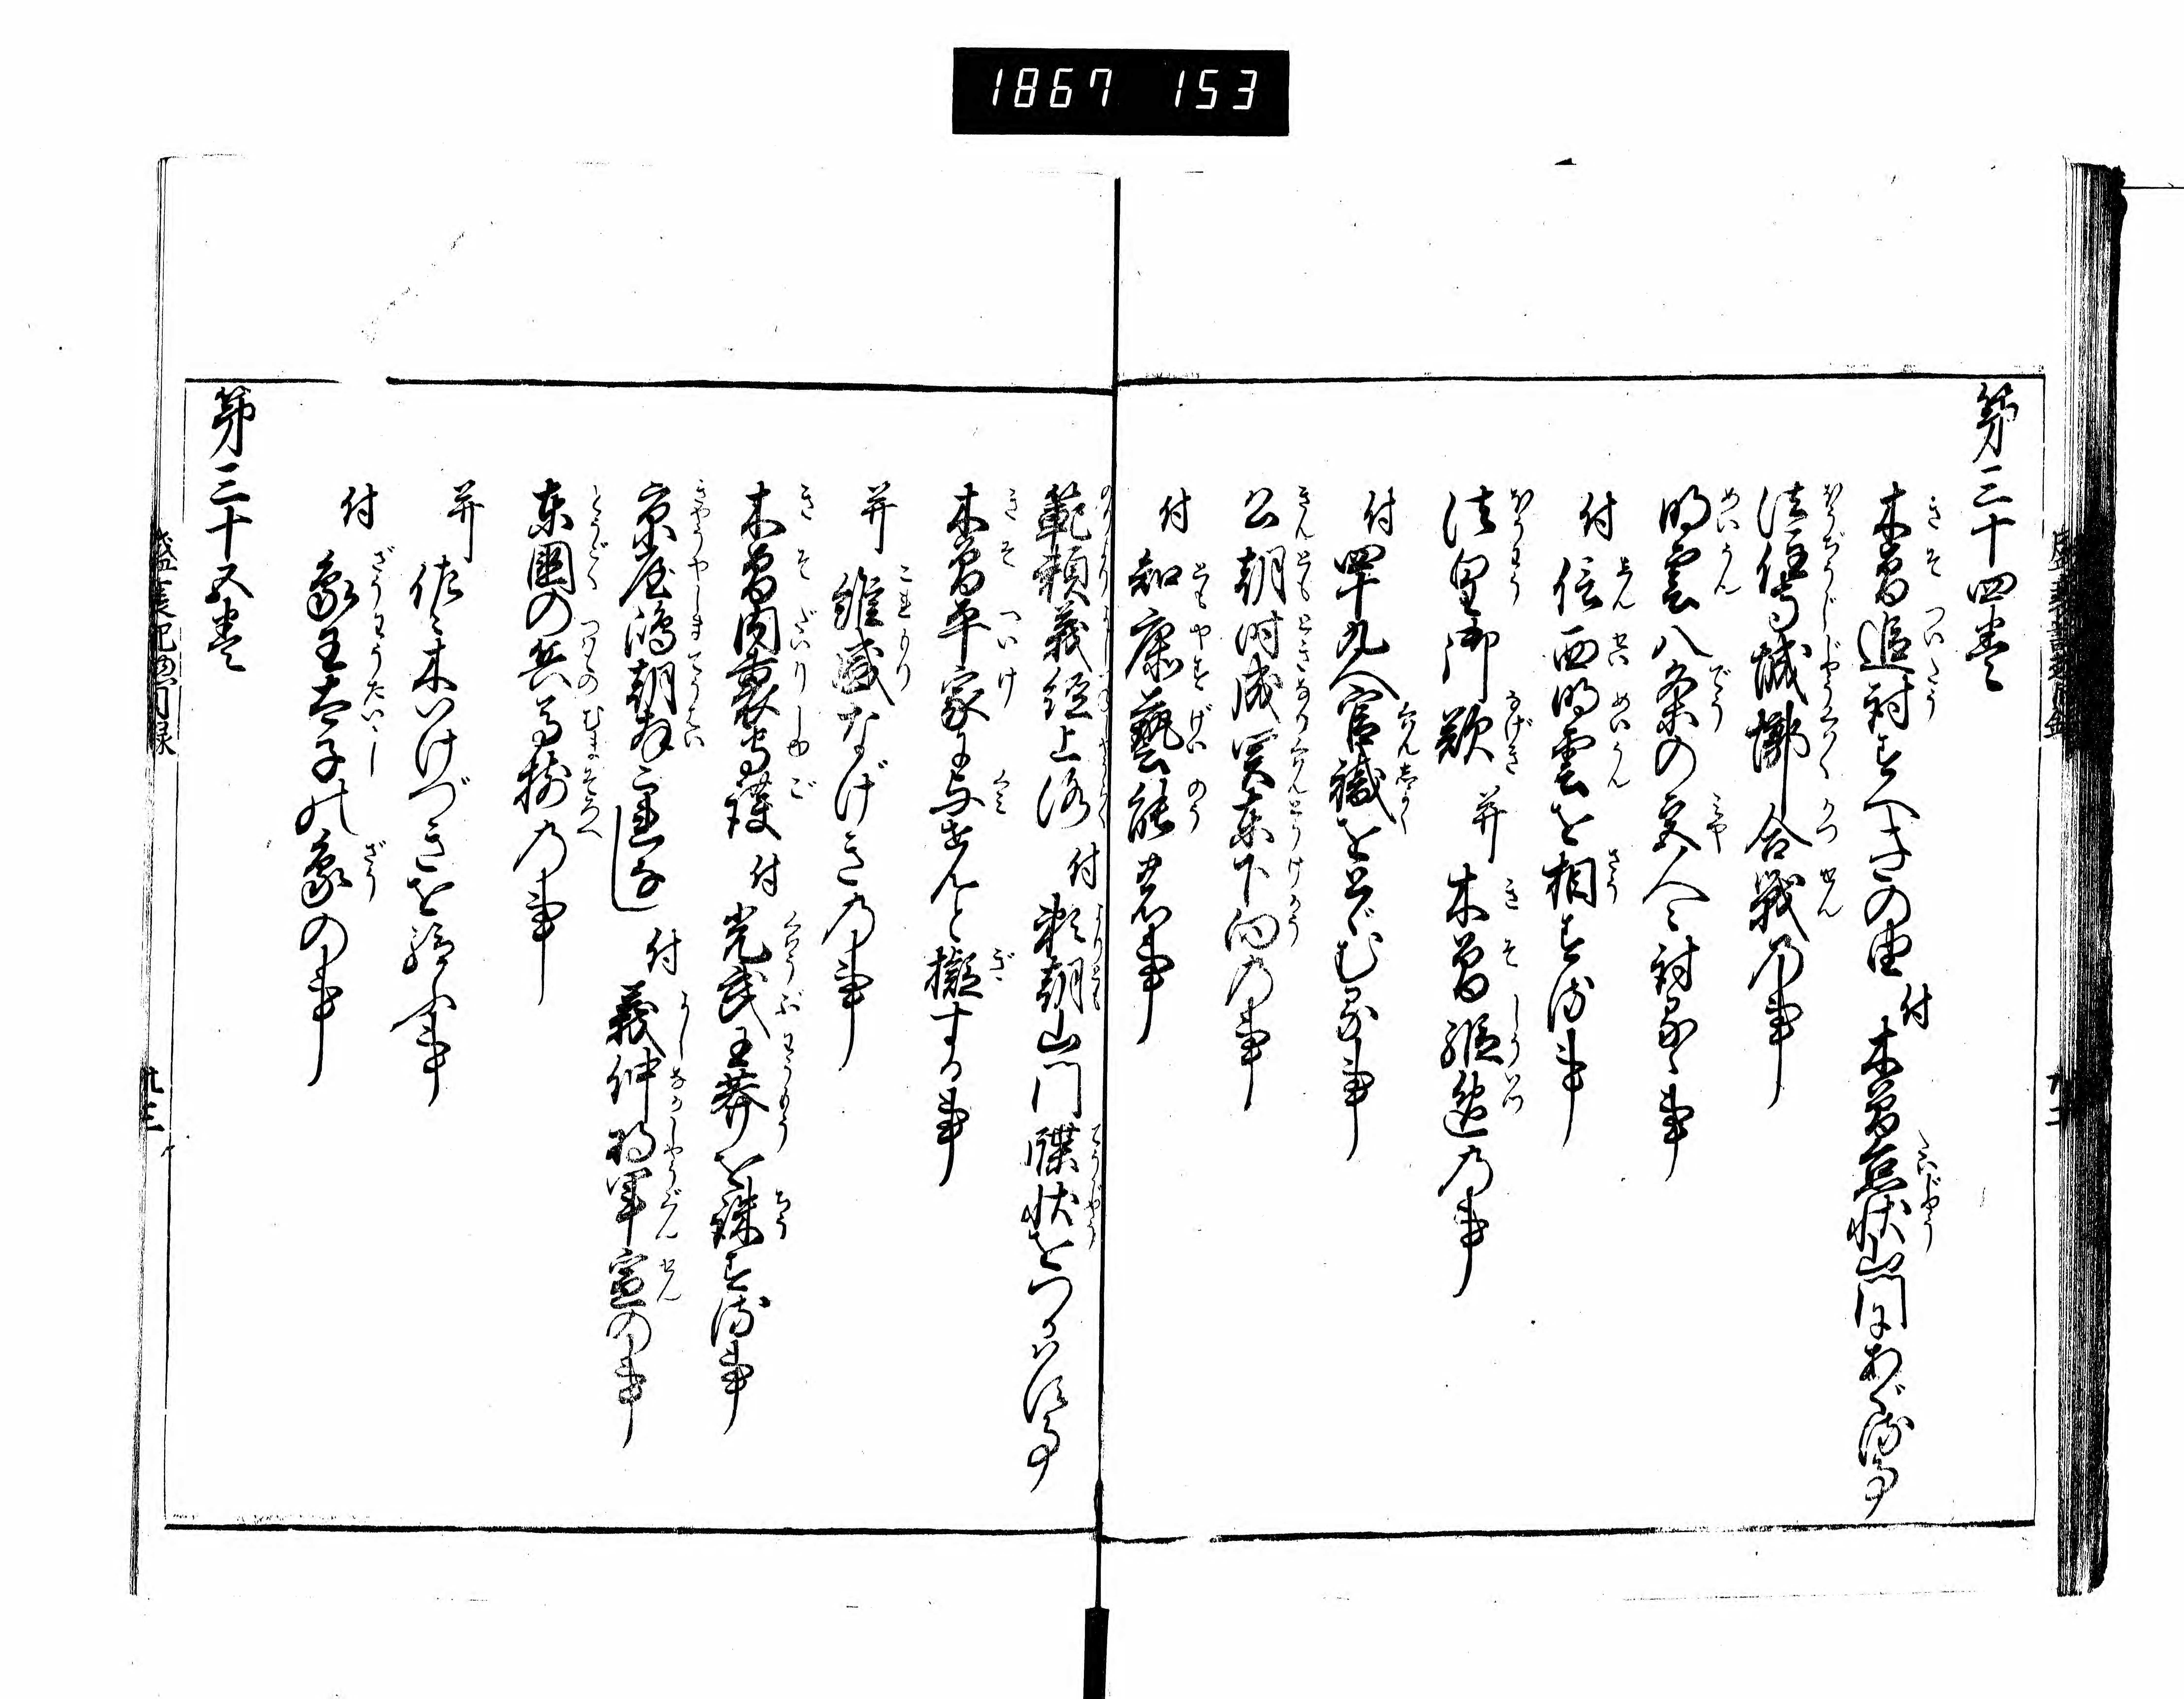 1867 153
第三十四巻
木曽追討すべきの由 付 木曽怠状山門にあぐる事
法住寺城槨合戦の事
明雲八条の宮人々討るゝ事
付 信西明雲を相する事
法皇御歎 并 木曽縦逸の事
付 四十九人官職をとゞむる事
公朝時成関東下向の事
付 知康藝能の事
範頼義経上洛 付 頼朝山門牒状をつかはす事
木曽平家に与せんと擬する事
并 維盛なげきの事
木曽内裏守護 付 光武王莽を誅する事
京屋嶋朝拝
付 義仲将軍宣の事
東国の兵馬揃の事
并 佐々木いけづきを給ふ事
付 象王太子の象の事
第三十五巻